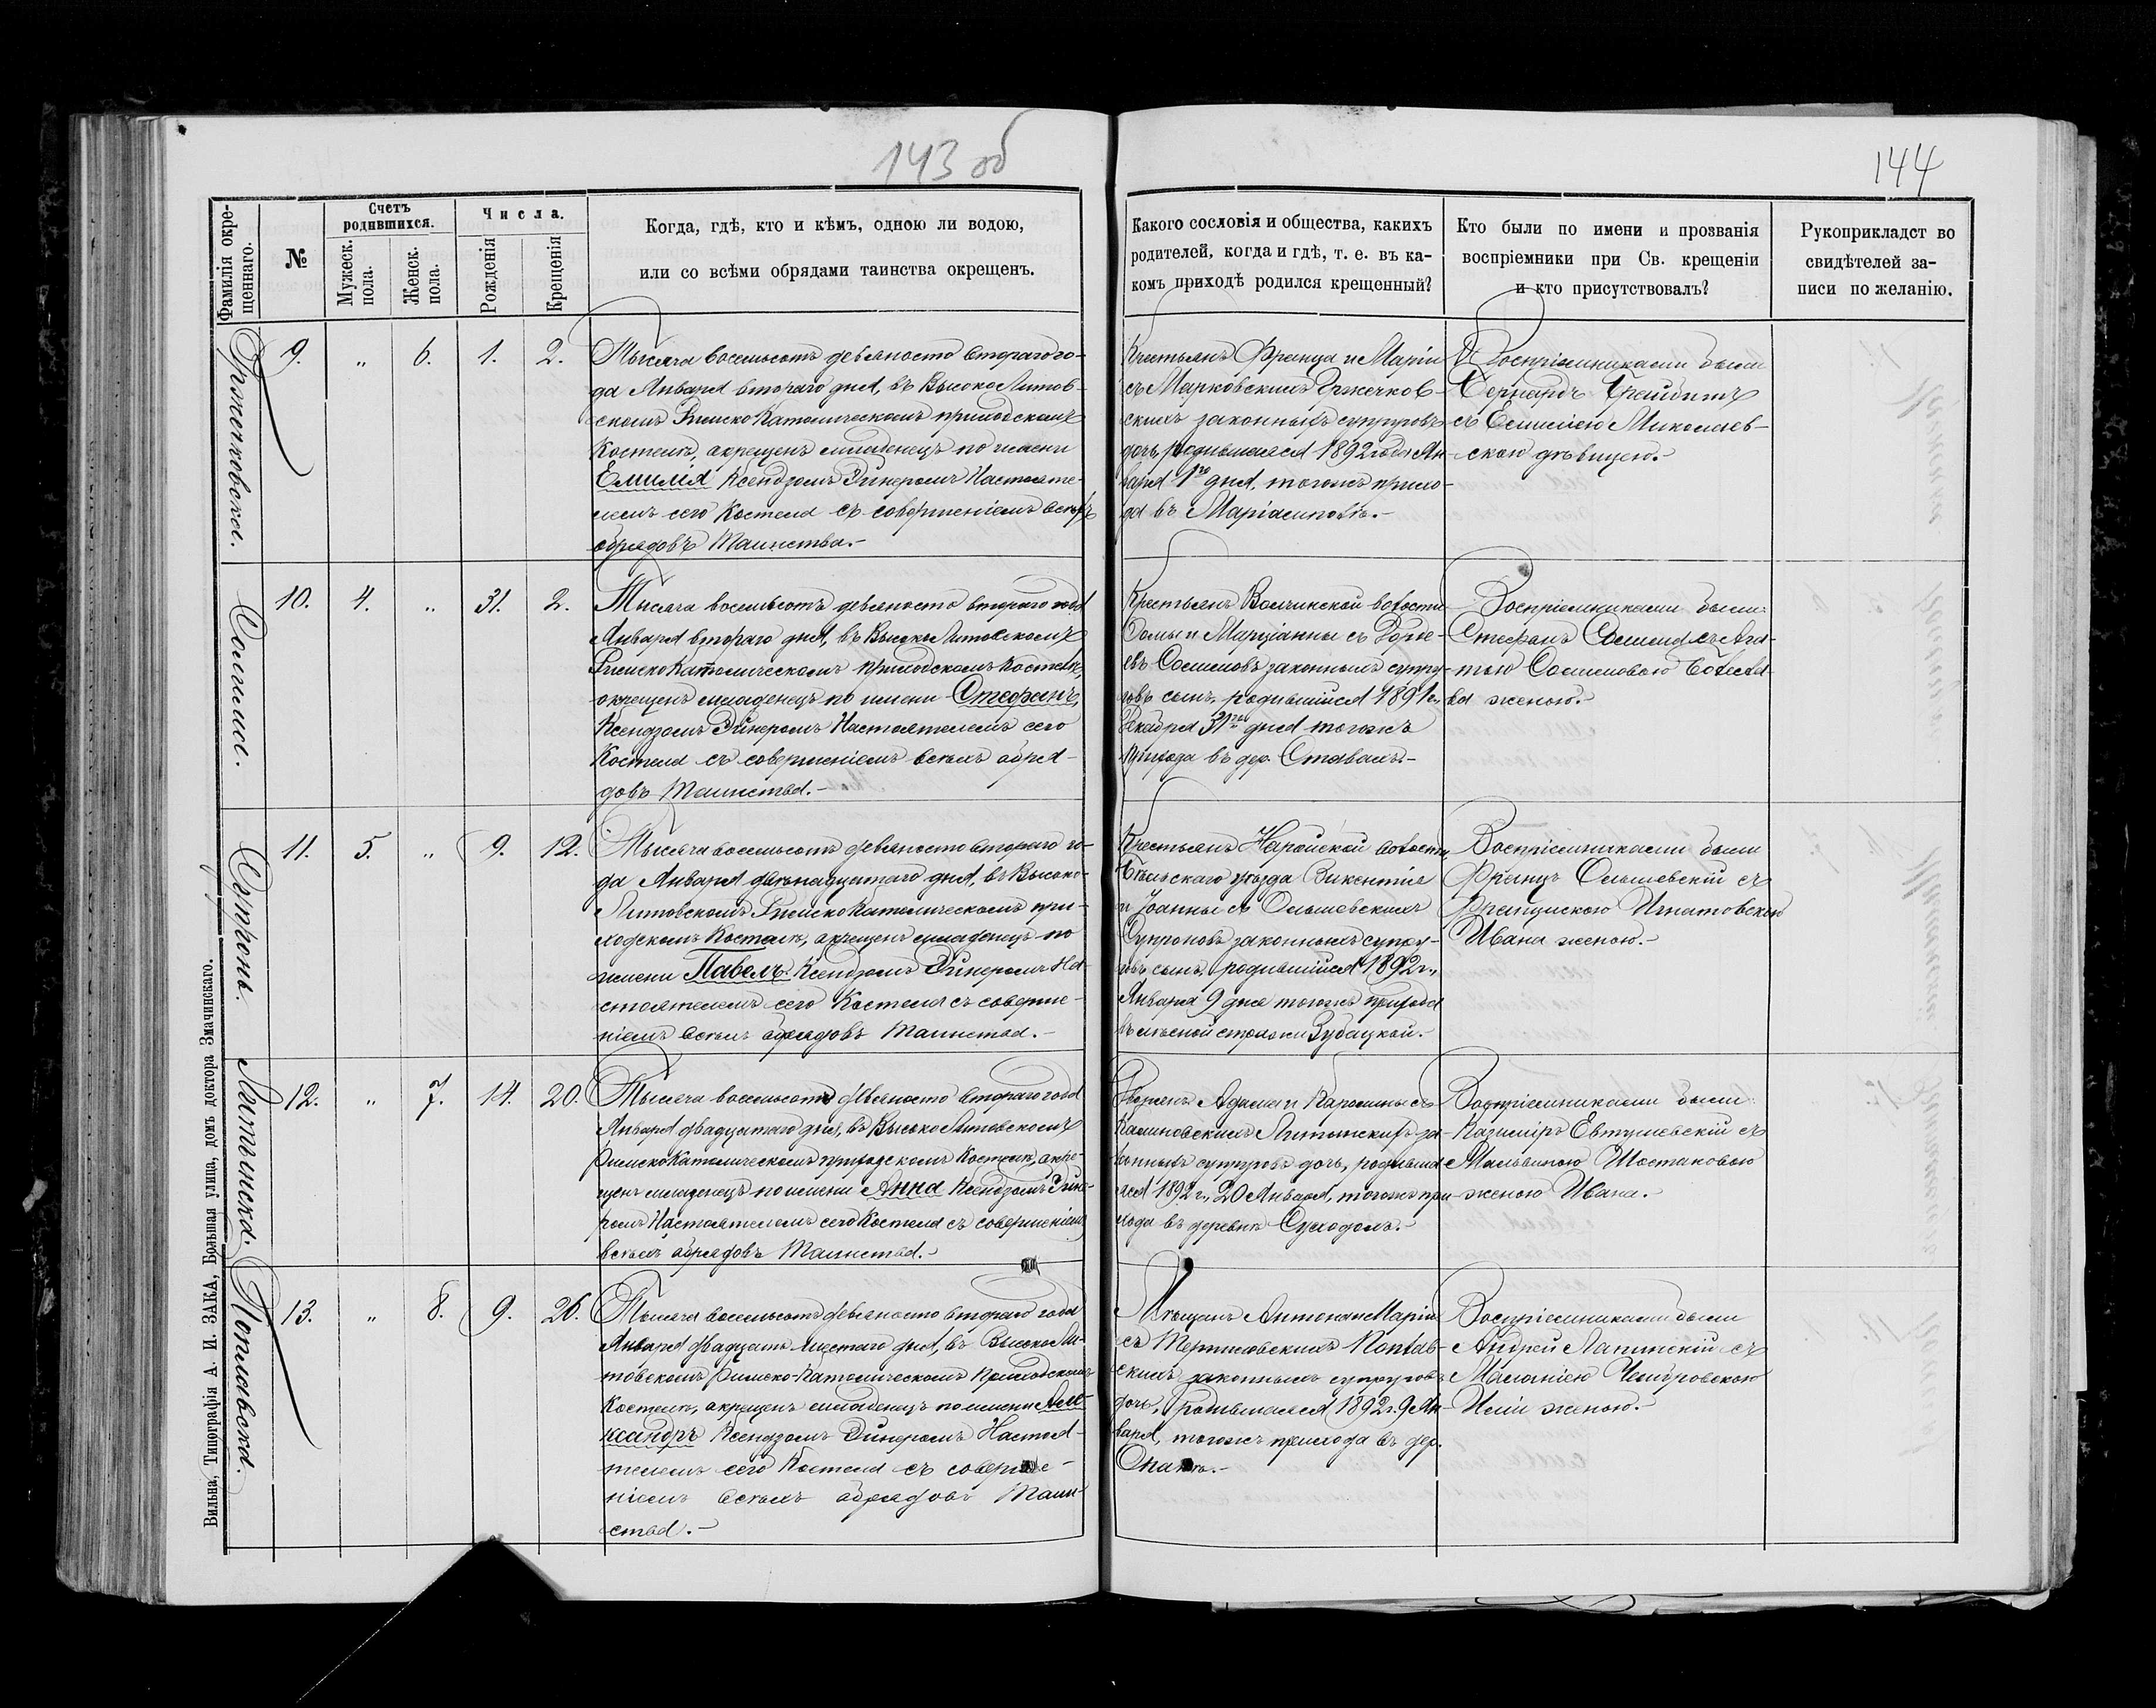 143 об
144
Фамилія окре-
щеннаго.
№
Счетъ
родившихся.
Мужеск.
пола.
Женск.
пола.
Числа.
Рожденія
Крещенія
Когда, гдѣ, кто и кѣмъ, одною ли водою,
или со всѣми обрядами таинства окрещенъ.
Какого сословія и общества, какихъ
родителей, когда и гдѣ, т. е. въ ка-
комъ приходѣ родился крещенный?
Кто были по имени и прозванія
воспріемники при Св. крещеніи
и кто присутствовалъ?
Рукоприкладст во
свидѣтелей за-
писи по желанію.
Гржечковская.
9. " 6. 1. 2.
Тысяча восемьсотъ девяносто втораго го-
да Января втораго дня, въ Высоко Литов-
скомъ Римско Католическомъ приходскомъ
Костелѣ, окрещенъ младенецъ по имени
Емилія Ксендзомъ Эйнеромъ Настояте-
лемъ сего Костела съ совершеніемъ всѣхъ
обрядовъ Таинства.-
Крестьянъ Франца и Маріи
съ Марковскихъ Гржечков-
скихъ законныхъ супруговъ
дочь, родившаяся 1892 года Ян-
варя 1го дня, тогожъ прихо-
да въ Маріамполѣ.-
Воспріемниками были
Бернардъ
съ Емиліею Миколаев-
скою дѣвицею.-
Сомила.
10. 4. " 31. 2.
Тысяча восемьсотъ девяносто втораго года
Января втораго дня, въ Высоко Литовскомъ
Римско Католическомъ приходскомъ Костелѣ,
окрещенъ младенецъ по имени Стефанъ,
Ксендзомъ Эйнеромъ Настоятелемъ сего
Костела съ совершеніемъ всѣхъ обря-
довъ Таинства.-
Крестьянъ Волчинской волости
Фомы и Марціанны съ
законныхъ супру-
говъ сынъ, родившійся 1891 г.,
Декабря 31го дня тогожъ
прихода въ дер. Ставахъ.-
Воспріемниками были
Стефанъ Сомила съ Ага-
тою Сомиловою Болесла-
ва женою.-
Супронъ.
11. 5. " 9. 12.
Тысяча восемьсотъ девяносто втораго го-
да Января двѣнадцатаго дня, въ Высоко-
Литовскомъ Римско Католическомъ при-
ходскомъ Костелѣ, окрещенъ младенецъ по
имени Павелъ. Ксендзомъ Эйнеромъ На-
стоятелемъ сего Костела съ соверше-
ніемъ всѣхъ обрядовъ Таинства.-
Крестьянъ Наройской волости,
Бѣльскаго уѣзда Викентія
и Іоанны съ Ольшевскихъ
Супроновъ законныхъ супру-
говъ сынъ, родившійся 1892 г.,
Января 9 дня тогожъ прихода
въ лѣсной стражи Зубацкой.-
Воспріемниками были
Францъ Ольшевскій съ
Францишкою Игнатовскою
Ивана женою.-
Литынска.
12. " 7. 14. 20.
Тысяча восемьсотъ девяносто втораго года
Января двадцатаго дня, въ Высоко Литовскомъ
Римско Католическомъ приходскомъ Костелѣ, окре-
щенъ младенецъ по имени Анна Ксендзомъ Эйне-
ромъ Настоятелемъ сего Костела съ совершеніемъ
всѣхъ обрядовъ Таинства.-
Дворянъ Адама и Каролины съ
Калиновскихъ Литынскихъ за-
конныхъ супруговъ дочь, родивша-
яся 1892 г., 20 Января, тогожъ при-
хода въ деревнѣ Суходолъ.-
Воспріемниками были
Казиміръ Евтушевскій съ
Мальвиною Шостаковою
женою Ивана.-
Поплавска.
13. " 8. 9. 26.
Тысяча восемьсотъ девяносто втораго года
Января двадцать шестаго дня, въ Высоко Ли-
товскомъ Римско-Католическомъ Приходскомъ
Костелѣ, окрещенъ младенецъ по имени Але-
ксандръ Ксендзомъ Эйнеромъ Настоя-
телемъ сего Костела съ соверше-
ніемъ всѣхъ обрядовъ Таин-
ства.-
Мѣщанъ Антона и Маріи
съ Поплав-
скихъ законныхъ супруговъ
дочь, родившаяся 1892 г. 9 Ян-
варя, тогожъ прихода въ дер.
Воспріемниками были
Андрей Лапинскій съ
Меланіею
женою.-
Вильна, Типографія А. И. ЗАКА, Большая улица, домъ доктора Змачинскаго.